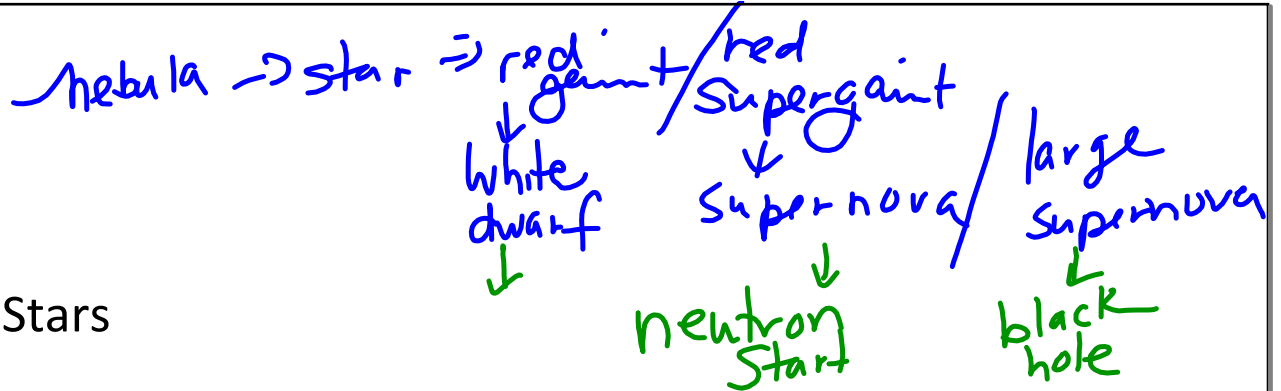 nebula -> star => red gaint / red supergaint
↓ ↓
white dwarf supernova / large supernova
↓ ↓ ↓
Stars neutron start black hole